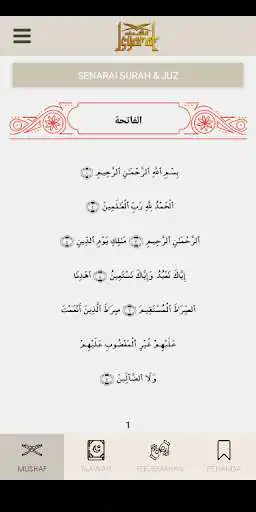 SENARAI SURAH & JUZ
الفاتحة
بِسْمِ ٱللَّهِ ٱلرَّحْمَٰنِ ٱلرَّحِيمِ
ٱلْحَمْدُ لِلَّهِ رَبِّ ٱلْعَٰلَمِينَ
ٱلرَّحْمَٰنِ ٱلرَّحِيمِ مَٰلِكِ يَوْمِ ٱلدِّينِ
إِيَّاكَ نَعْبُدُ وَإِيَّاكَ نَسْتَعِينُ ٱهْدِنَا
ٱلصِّرَٰطَ ٱلْمُسْتَقِيمَ صِرَٰطَ ٱلَّذِينَ أَنْعَمْتَ
عَلَيْهِمْ غَيْرِ ٱلْمَغْضُوبِ عَلَيْهِمْ
وَلَا ٱلضَّآلِّينَ
1
MUSHAF TILAWAH TERJEMAHAN PENANDA